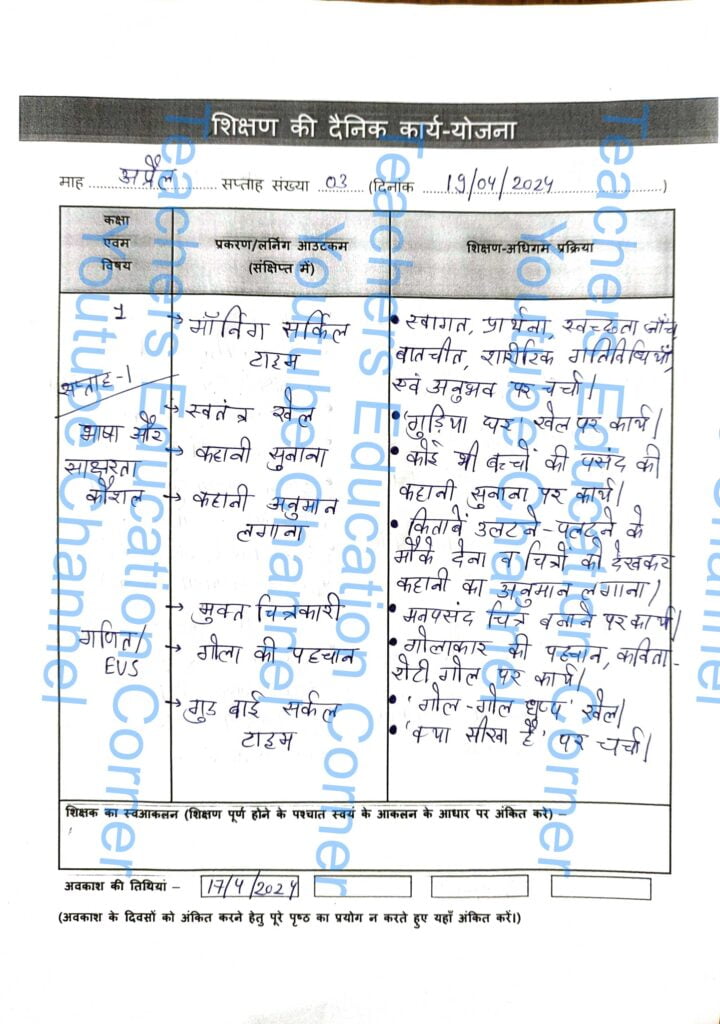 शिक्षण की दैनिक कार्य-योजना
माह अप्रैल सप्ताह संख्या 03 (दिनांक 19/04/2024)
कक्षा
एवम
विषय
प्रकरण/लर्निंग आउटकम
(संक्षिप्त में)
शिक्षण-अधिगम प्रक्रिया
1
सप्ताह-1
भाषा और
साक्षरता
कौशल
गणित/
EVS
→ मॉर्निंग सर्किल
टाइम
→ स्वतंत्र खेल
→ कहानी सुनाना
→ कहानी अनुमान
लगाना
→ मुक्त चित्रकारी
→ गोला की पहचान
→ गुड बाई सर्कल
टाइम
• स्वागत, प्रार्थना, स्वच्छता जाँच,
बातचीत, शारीरिक गतिविधियाँ,
एवं अनुभव पर चर्चा।
• 'गुड़िया घर' खेल पर कार्य।
• कोई भी बच्चों की पसंद की
कहानी सुनाना पर कार्य।
• किताबें उलटने-पलटने के
मौके देना व चित्रों को देखकर
कहानी का अनुमान लगाना।
• मनपसंद चित्र बनाने पर कार्य।
• गोलाकार की पहचान, कविता-
रोटी गोल पर कार्य।
• 'गोल-गोल धुप्प' खेल।
• 'क्या सीखा है' पर चर्चा।
शिक्षक का स्वआकलन (शिक्षण पूर्ण होने के पश्चात स्वयं के आकलन के आधार पर अंकित करे) –
अवकाश की तिथियां – 17/4/2024
(अवकाश के दिवसों को अंकित करने हेतु पूरे पृष्ठ का प्रयोग न करते हुए यहाँ अंकित करें।)
Teachers Education Corner
Youtube Channel
Teachers Education Corner
Youtube Channel
Teachers Education Corner
Youtube Channel